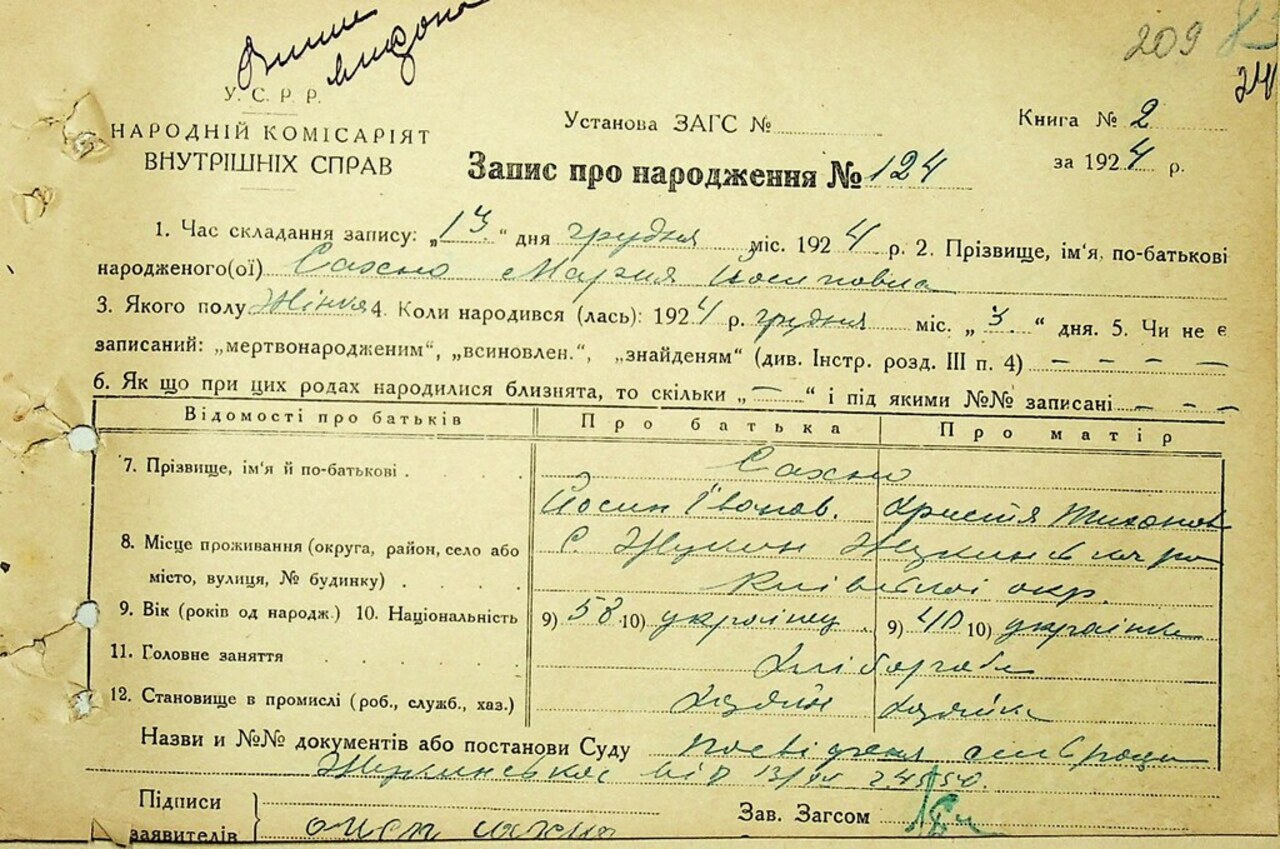 209
24
У. С. Р. Р.
НАРОДНІЙ КОМІСАРІЯТ
ВНУТРІШНІХ СПРАВ
Установа ЗАГС №
Книга № 2
за 1924 р.
Запис про народження № 124
1. Час складання запису: „13“ дня грудня міс. 1924 р. 2. Прізвище, ім'я, по-батькові
народженого(ої) Сахно Мария Йосиповна
3. Якого полу Жіночя 4. Коли народився (лась): 1924 р. грудня міс. „3“ дня. 5. Чи не є
записаний: „мертвонародженим“, „всиновлен.“, „знайденям“ (див. Інстр. розд. III п. 4) — — — —
6. Як що при цих родах народилися близнята, то скільки „—“ і під якими №№ записані — — —
Відомості про батьків Про батька Про матір
7. Прізвище, ім'я й по-батькові Сахно
Йосип Іванов. Христя Тихонов
8. Місце проживання (округа, район, село або с. Жукин Жукинського ра
місто, вулиця, № будинку) Київської окр.
9. Вік (років од народж.) 10. Національність 9) 58 10) українец 9) 40 10) українка
11. Головне заняття Хлібороби
12. Становище в промислі (роб., служб., хаз.) Хазяїн Хазяйка
Назви и №№ документів або постанови Суду Посвідченя сільради
Жукинської від 13/XII
Підписи
заявителів
Зав. Загсом